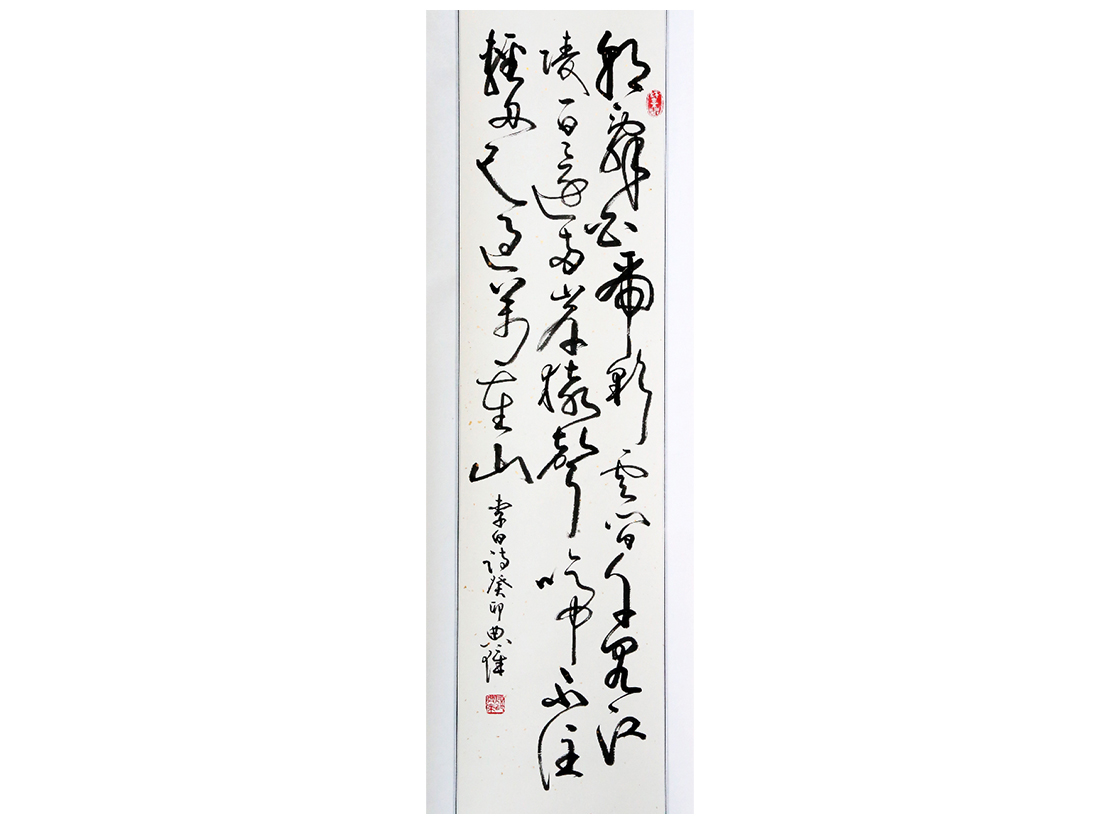 朝辭白帝彩雲間千里江
陵一日還兩岸猿聲啼不住
輕舟已過萬重山
李白詩癸卯典